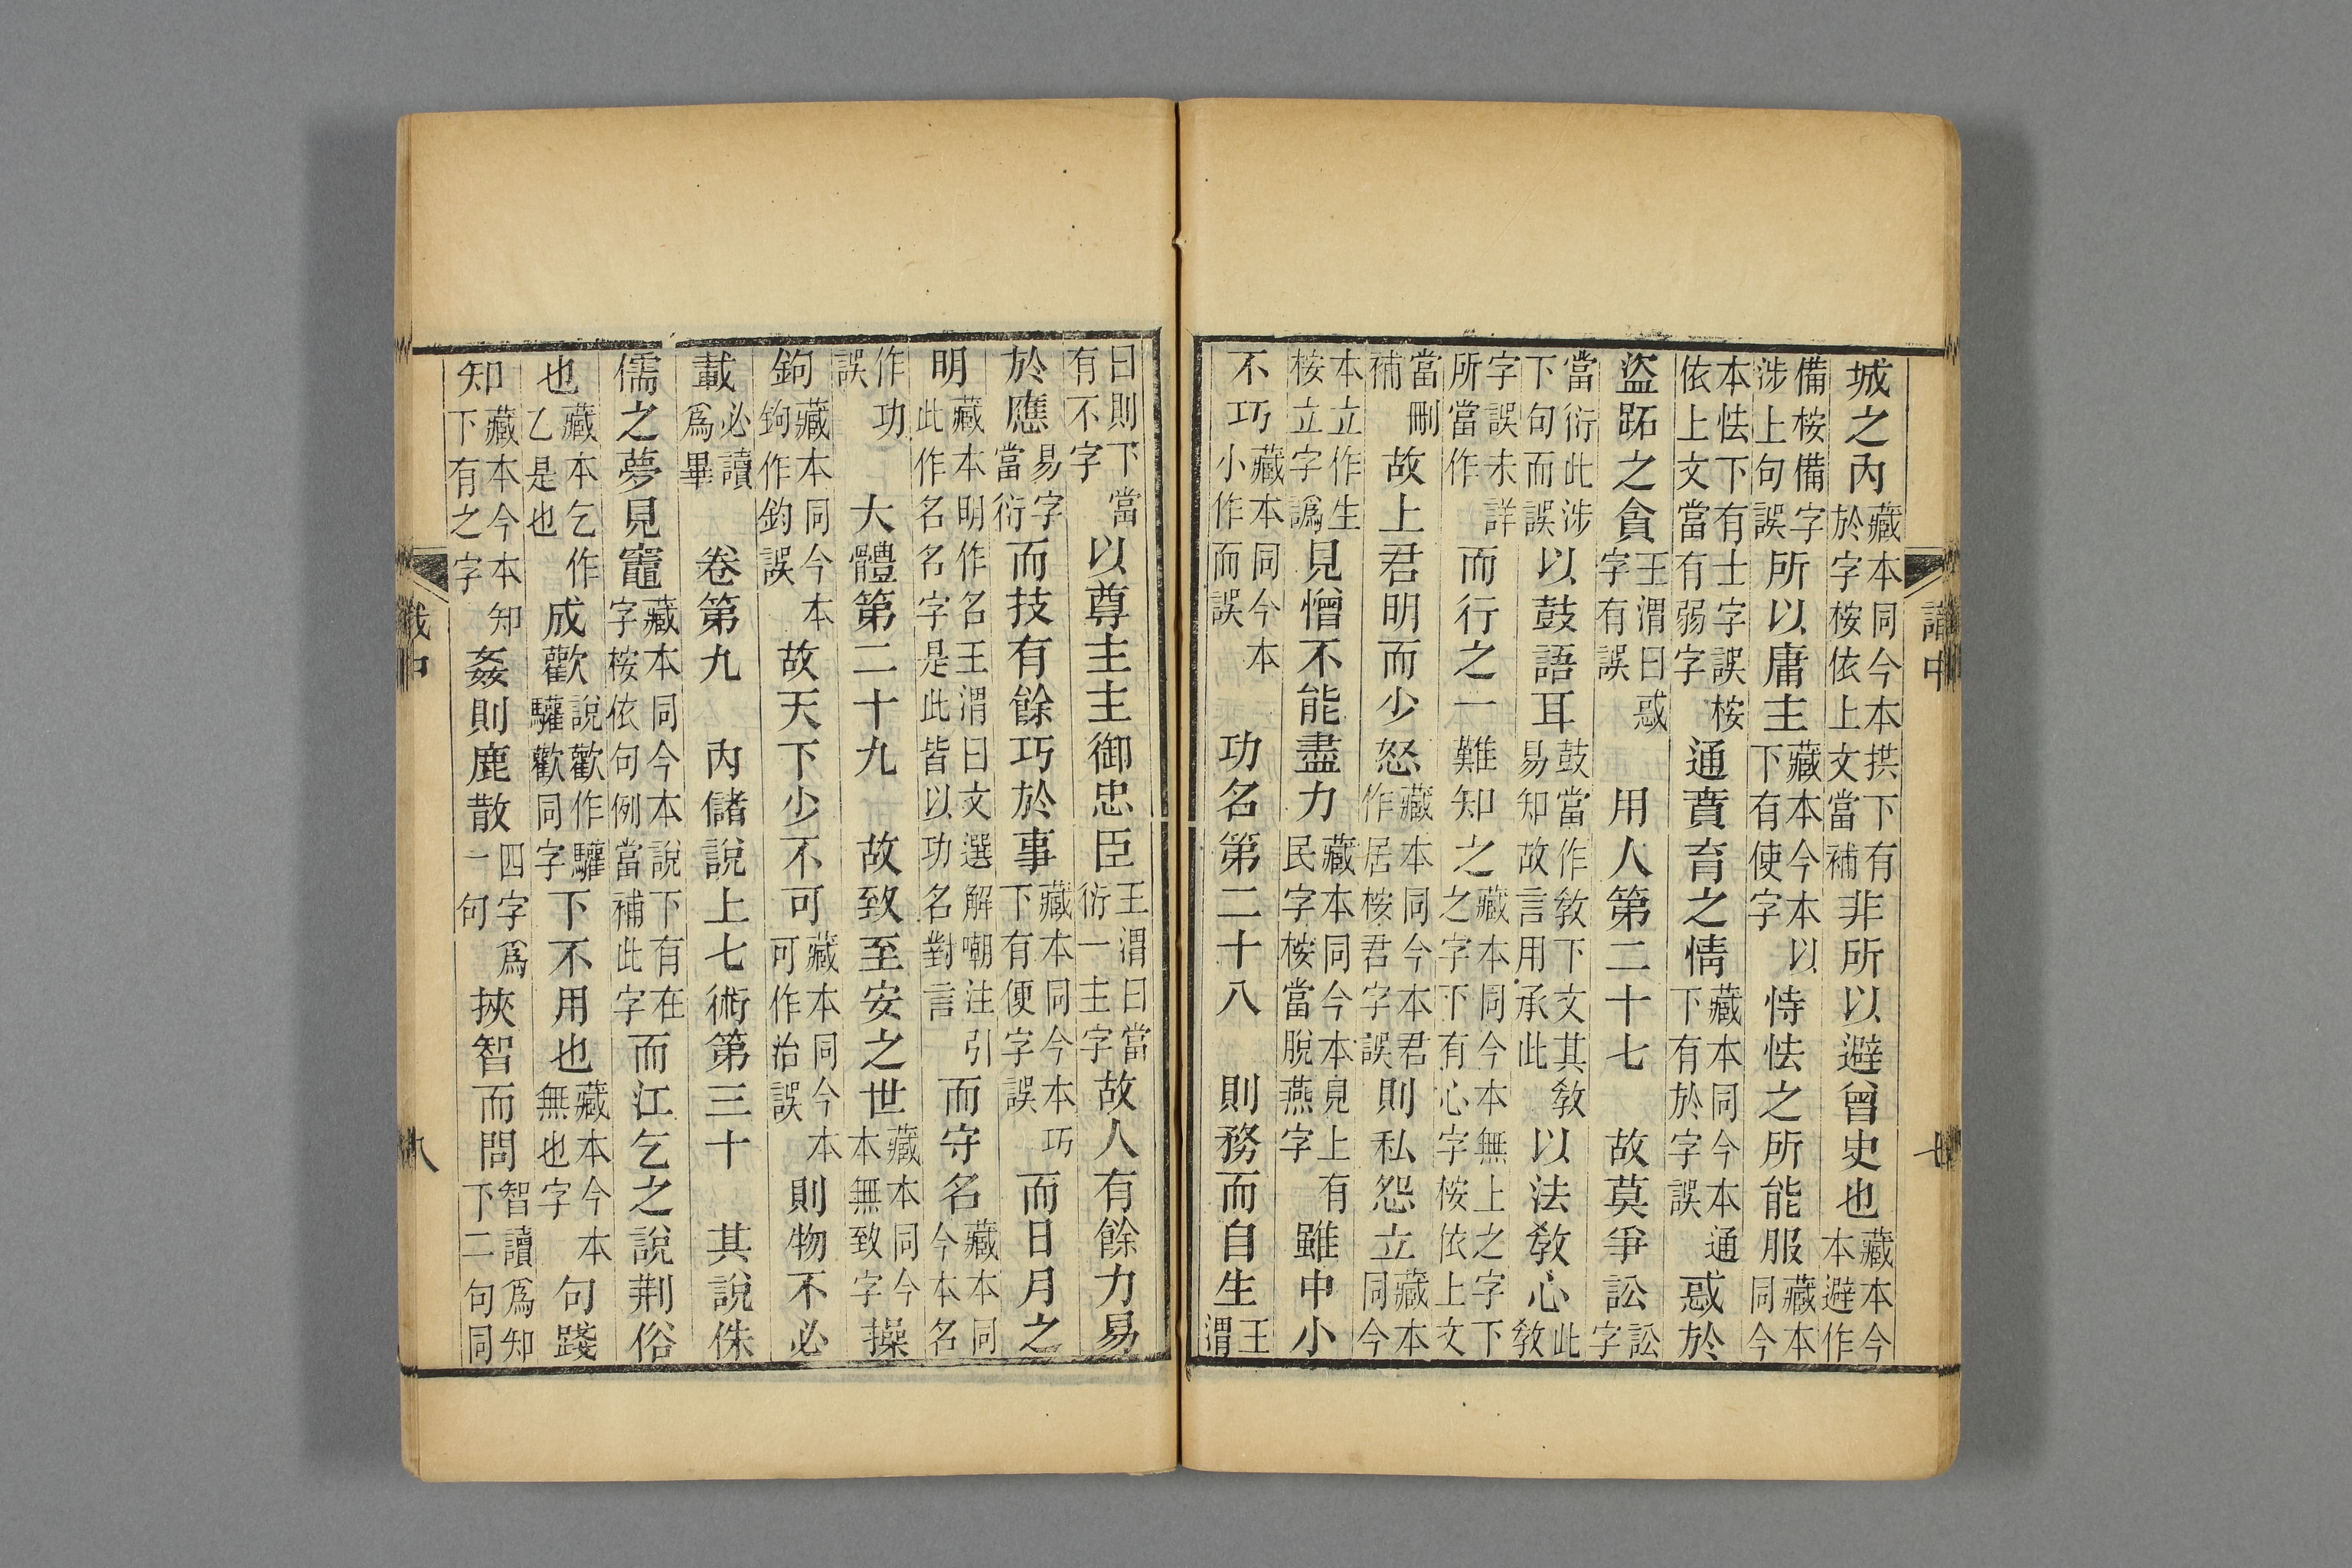 城之內藏本同今本拱下有於字桉依上文當補非所以避曾史也藏本今本避作
備桉備字涉上句誤所以庸主藏本今本以下有使字恃怯之所能服藏本同今
本怯下有士字誤桉依上文當有弱字通賁育之情藏本同今本通下有於字誤惑於
盜跖之貪王渭曰惑字有誤 用人第二十七 故莫爭訟訟字
當衍此涉下句而誤以鼓語耳鼓當作敎下文其敎易知故言用承此以法敎心此敎
字誤未詳所當作而行之一難知之藏本同今本無上之字下之字下有心字桉依上文
當刪補故上君明而少怒藏本同今本君作居桉君字誤則私怨立藏本同今
本立作生桉立字譌見憎不能盡力藏本同今本見上有民字桉當脫燕字雖中小
不巧藏本同今本小作而誤 功名第二十八 則務而自生王渭
曰則下當有不字以尊主主御忠臣王渭曰當衍一主字故人有餘力易
於應易字當衍而技有餘巧於事藏本同今本巧下有便字誤而日月之
明藏本明作名王渭曰文選解嘲注引此作名名字是此皆以功名對言而守名藏本同今本名
作功誤 大體第二十九 故致至安之世藏本同今本無致字操
鉤藏本同今本鉤作鈞誤故天下少不可藏本同今本可作治誤則物不必
載必讀爲畢 卷第九 內儲說上七術第三十 其說侏
儒之夢見竈藏本同今本說下有在字桉依句例當補此字而江乞之說荆俗
也藏本乞作乙是也成歡說歡作驩驩歡同字下不用也藏本今本無也字句踐
知藏本今本知下有之字姦則鹿散四字爲一句挾智而問智讀爲知下二句同
八